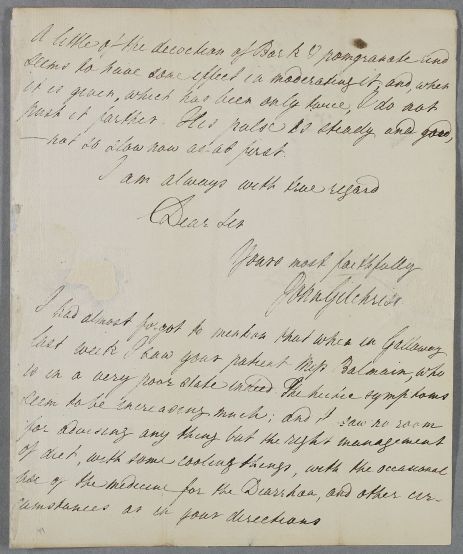 A little of the decoction of Bark & pomgranate and
seems to have some effect in moderating it, and when
it is given, which has been only twice, I do not
push it farther. His pulse is steady and good,
— not so slow now as at first.
I am always with true regard
Dear Sir
Yours most faithfully
John Gilchrist
I had almost forgot to mention that when in Galloway
last week I saw your patient Miss Balmain, who
is in a very poor state indeed. The hectic symptoms
seem to be increasing much; and I saw no room
for advising any thing but the right management
of diet, with some cooling things, with the occasional
use of the medicine for the Diarrhœa, and other cir-
cumstances as in your directions